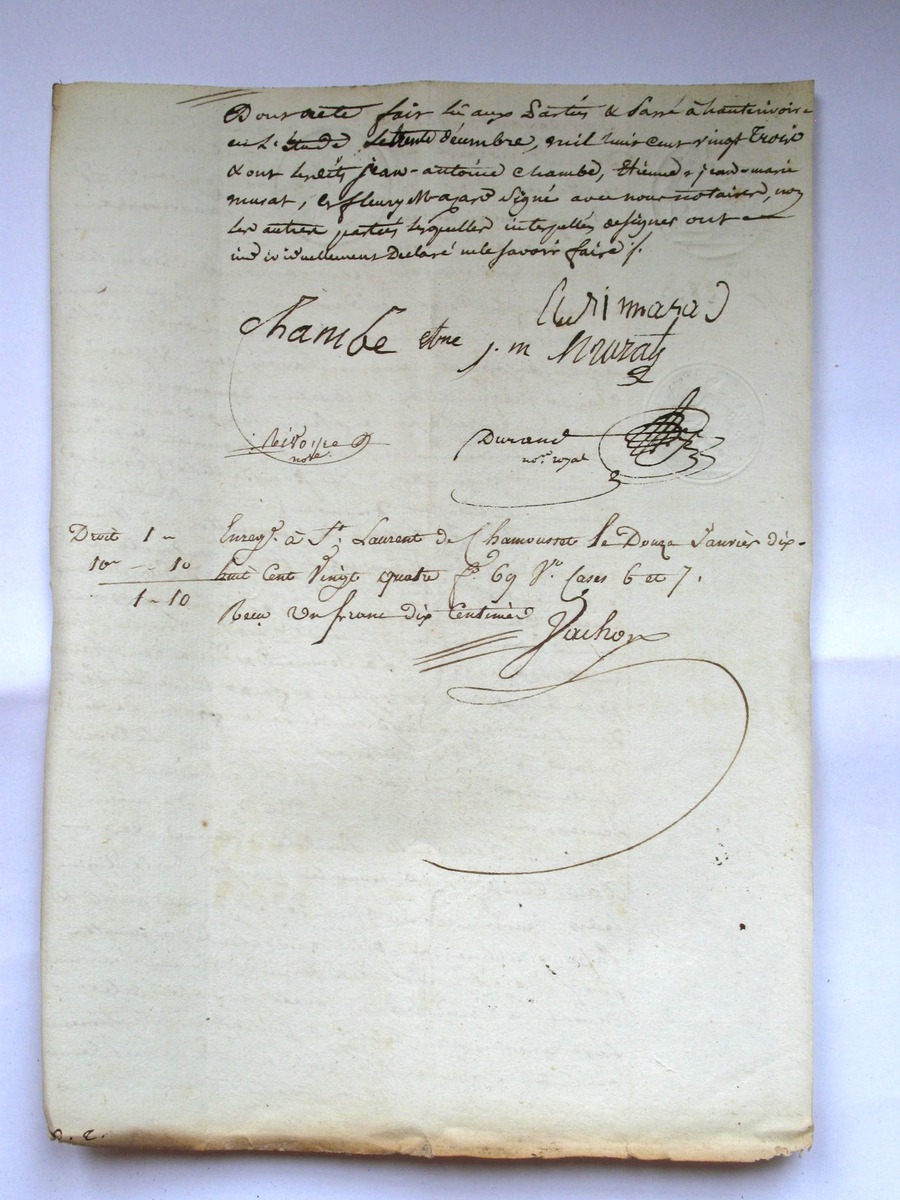 Dont acte fait lu aux parties & passé à hauterivoire
en L'étude Le trente décembre, mil huit cent vingt Trois
& ont lesdits jean-antoine chambe, Etienne & jean-marie
murat, & fleury Mazard Signé avec nous notaires, non
les autres parties lesquelles interpellés de signer ont
individuellement Déclaré ne le Savoir faire /.
chambe etne j. m Murat
Rivoire
note.
Durand
nore. royal
Droit 1 "
10e - 10
1 - 10
Enregé. à St. Laurent de Chamousset le Douze Janvier dix-
huit Cent Vingt quatre fo. 69 Vo. Cases 6 et 7.
Reçu un franc dix Centimes
Vachon